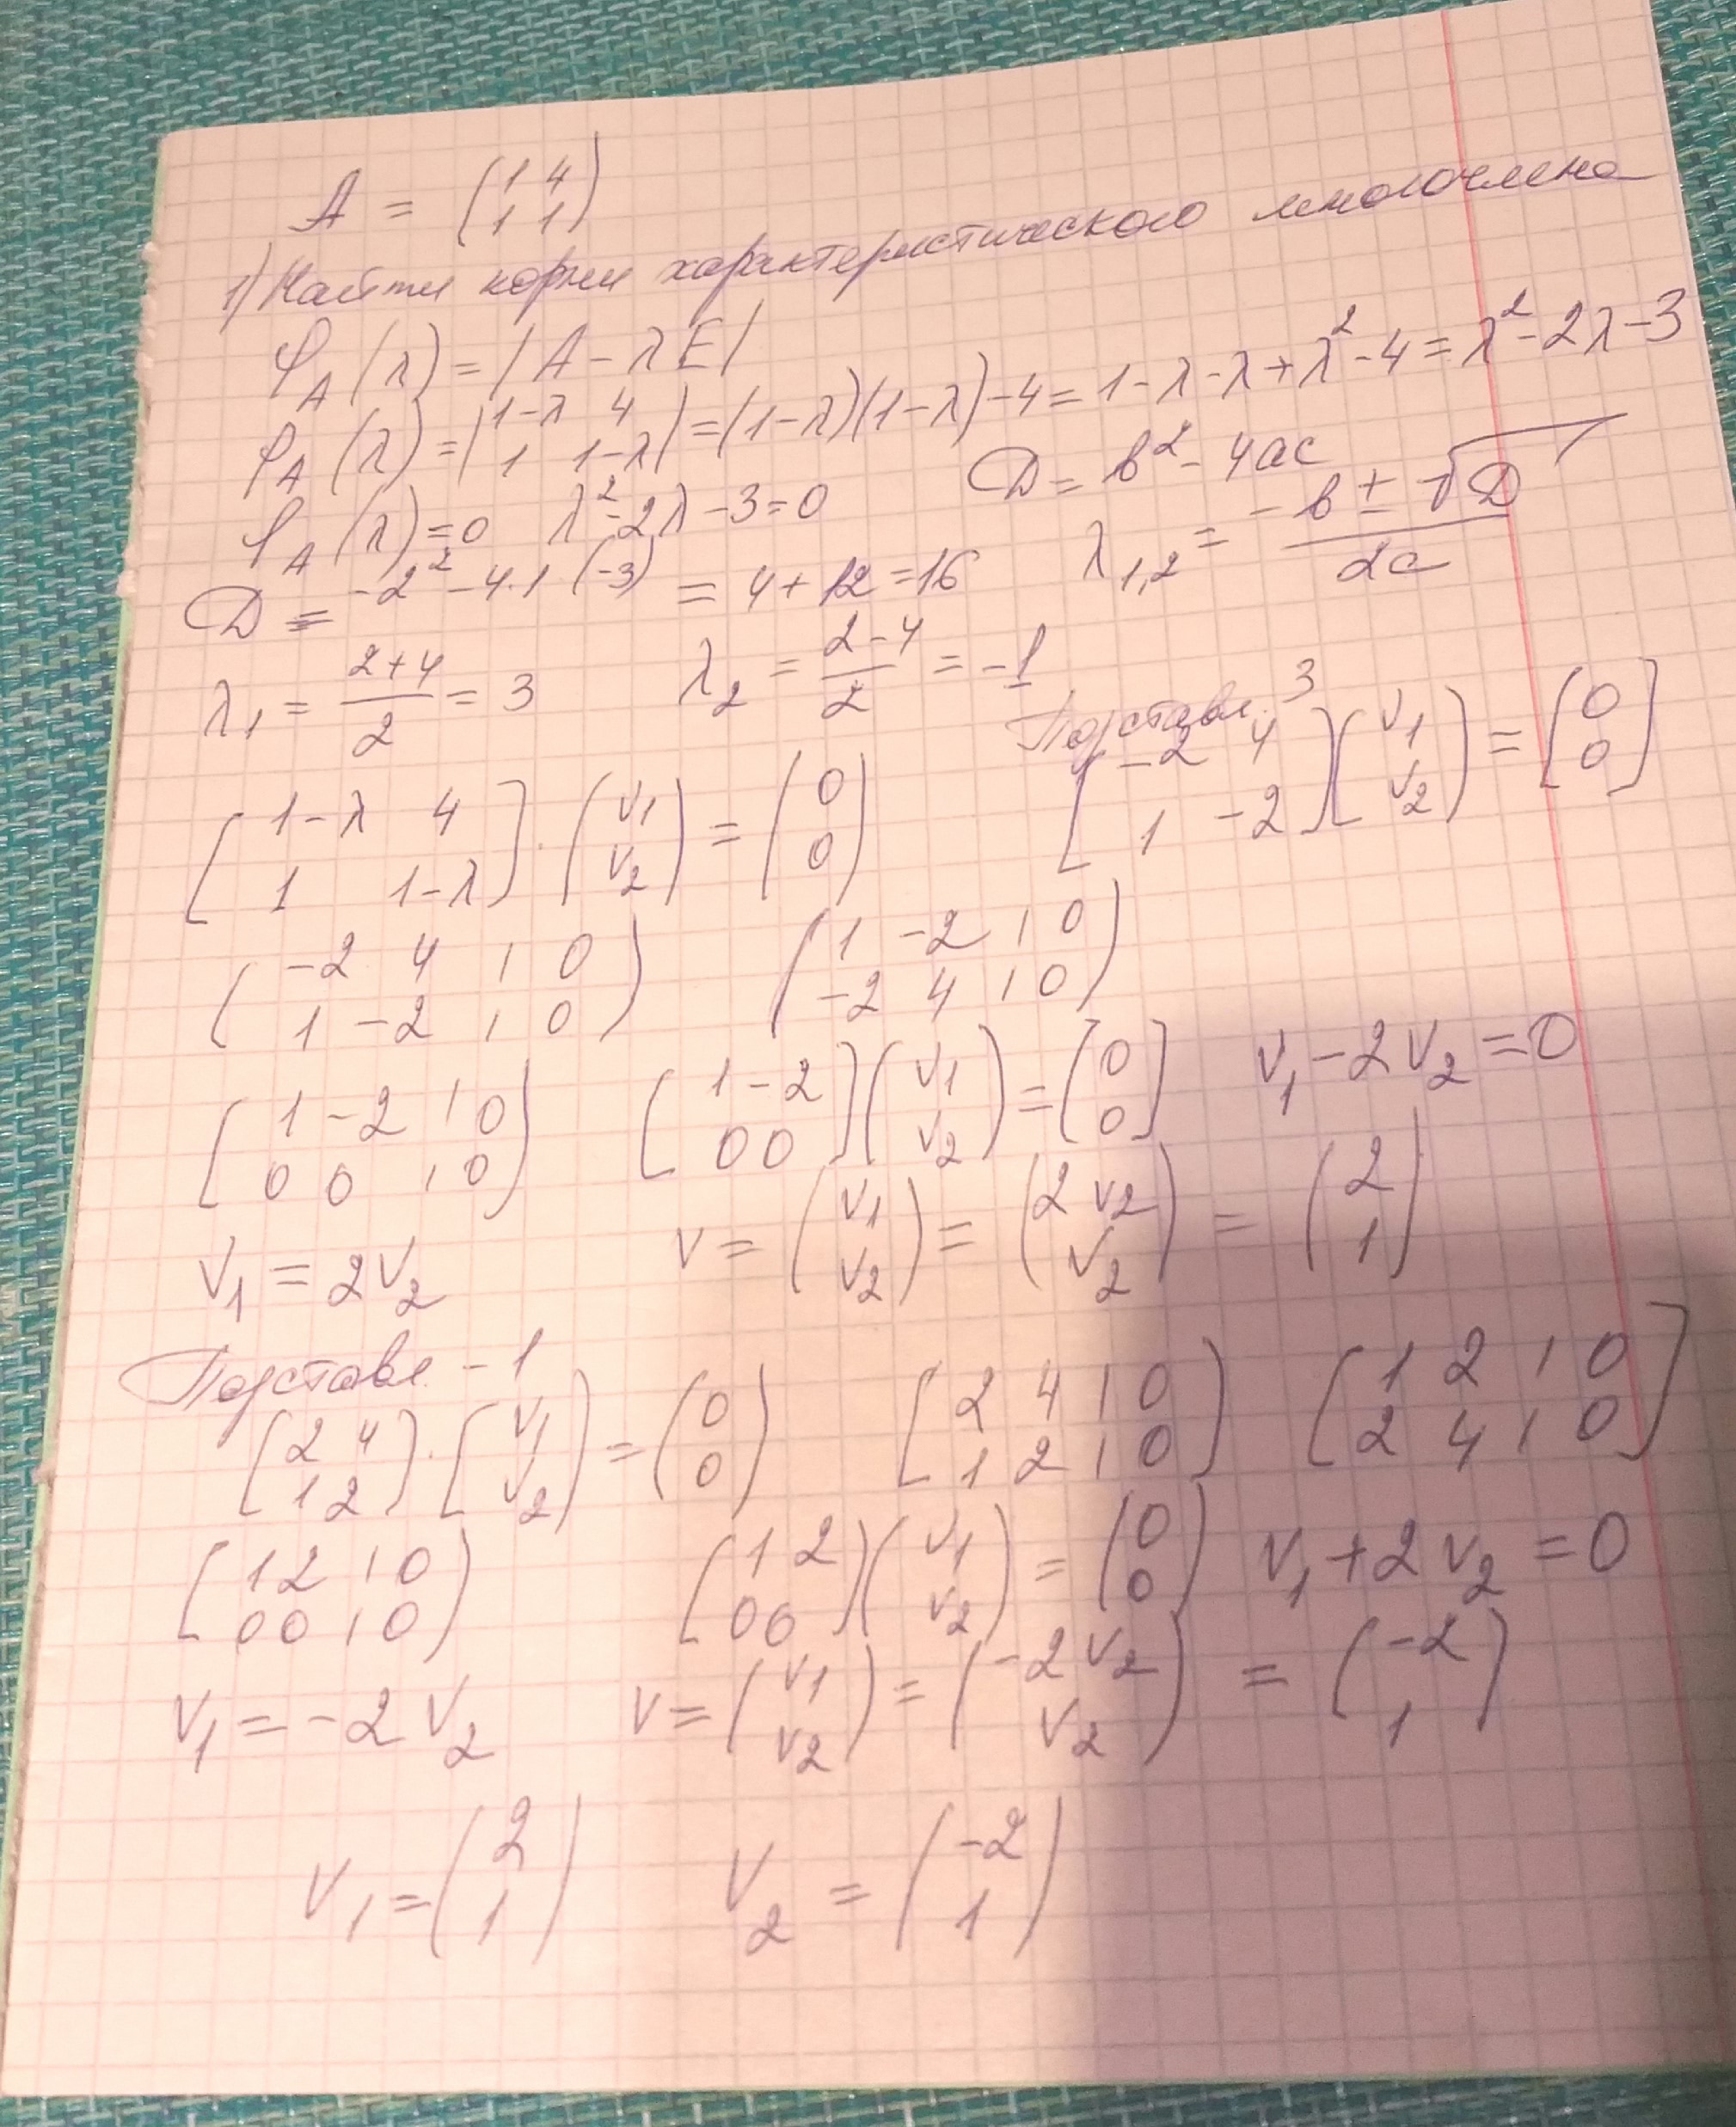 A = (1 4
1 1)
1) Найти корни характеристического многочлена
φ_A (λ) = |A - λE|
φ_A (λ) = |1-λ 4
1 1-λ| = (1-λ)(1-λ) - 4 = 1-λ-λ+λ²-4 = λ²-2λ-3
φ_A (λ) = 0 λ²-2λ-3=0 D = b² - 4ac
D = -2² - 4·1 (-3) = 4 + 12 = 16 λ_1,2 = (-b ± √D)/2a
λ_1 = (2+4)/2 = 3 λ_2 = (2-4)/2 = -1
Подставл. 3
[1-λ 4
1 1-λ] · (v_1
v_2) = (0
0) [-2 4
1 -2](v_1
v_2) = [0
0]
(-2 4 | 0
1 -2 | 0) (1 -2 | 0
-2 4 | 0)
[1 -2 | 0
0 0 | 0) [1 -2
0 0](v_1
v_2) = [0
0] v_1 - 2v_2 = 0
v_1 = 2v_2 v = (v_1
v_2) = (2v_2
v_2) = (2
1)
Подставл. -1
[2 4
1 2] · [v_1
v_2) = (0
0) [2 4 | 0
1 2 | 0) [1 2 | 0
2 4 | 0]
[1 2 | 0
0 0 | 0) [1 2
0 0)(v_1
v_2) = (0
0) v_1 + 2v_2 = 0
v_1 = -2v_2 v = (v_1
v_2) = (-2v_2
v_2) = (-2
1)
v_1 = (2
1) v_2 = (-2
1)